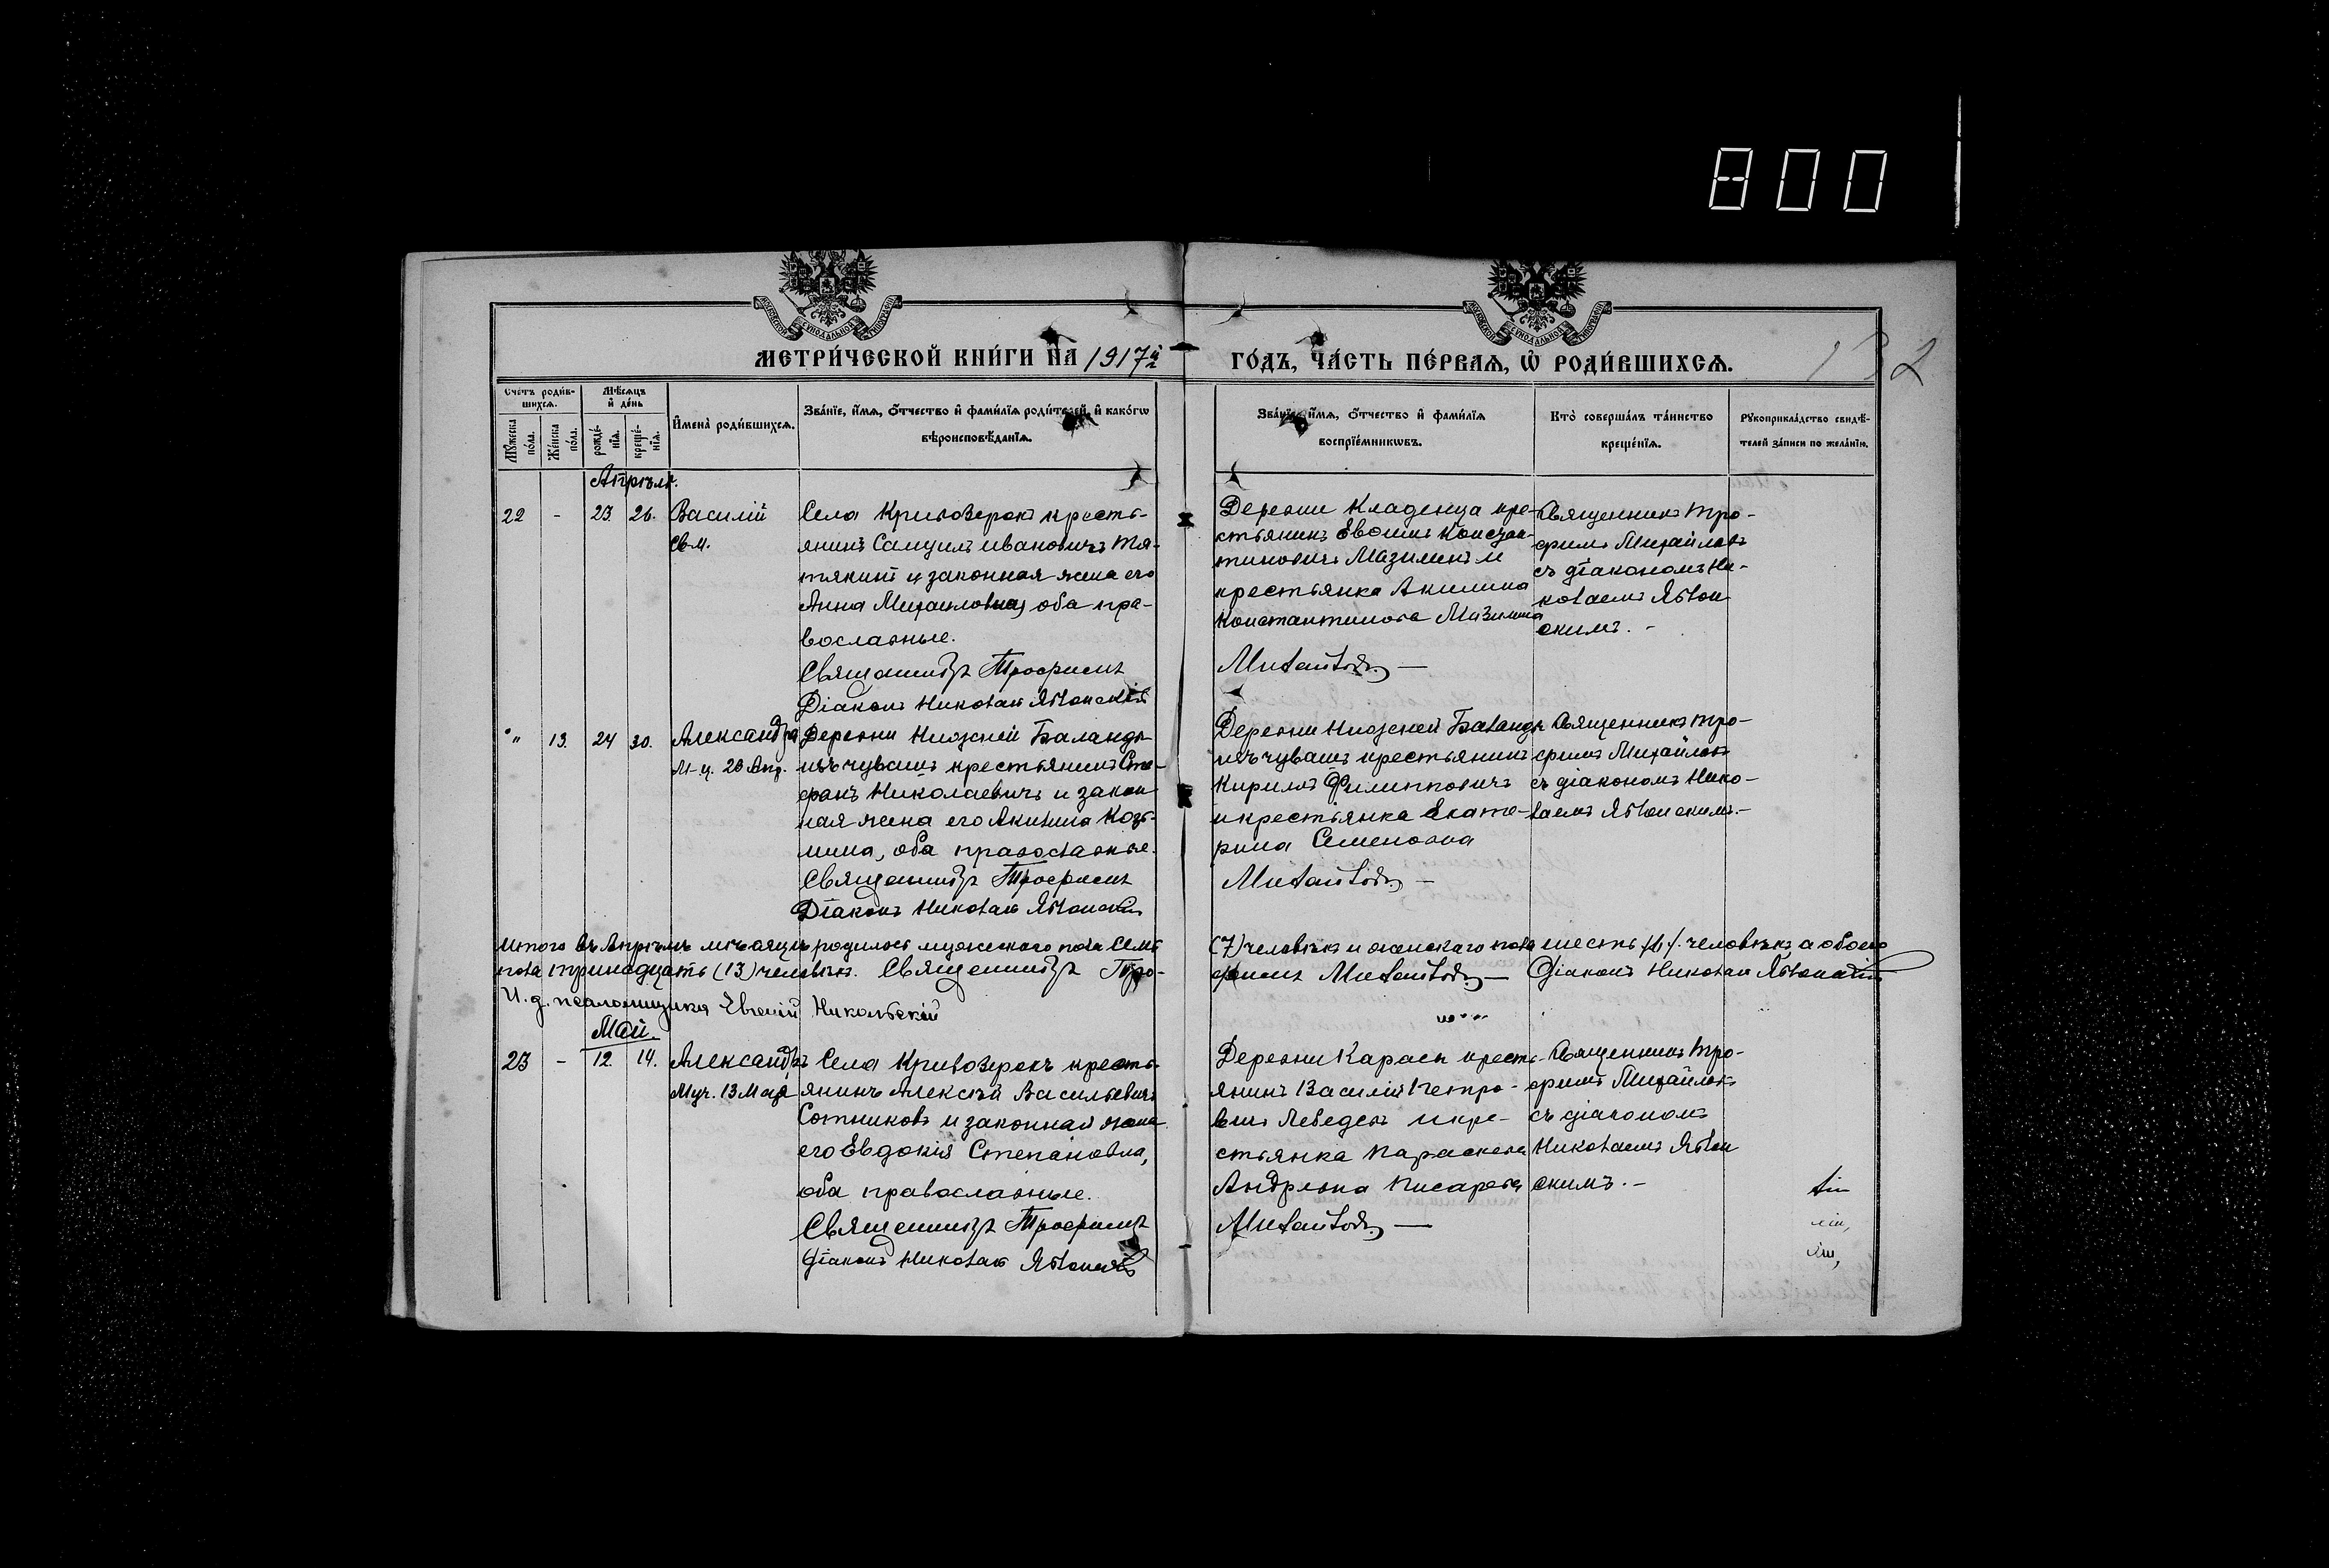 800
МЕТРИ́ЧЕСКОЙ КНИ́ГИ НА 1917й
ГО́ДЪ, ЧА́СТЬ ПЕ́РВАЯ, Ѡ҆ РОДИ́ВШИХСЯ.
132
Сче́тъ роди́в-
шихся.
Мꙋ́жеска
по́ла.
Же́нска
по́ла.
Мѣ́сяцъ
и҆ де́нь
рожде́-
нїя.
креще́-
нїя.
И҆мена̀ роди́вшихся.
Зва́нїе, и҆́мя, ѻ҆́тчество и҆ фами́лїя роди́телей, и҆ како́гѡ
вѣроисповѣ́данїя.
Зва́нїе, и҆́мя, ѻ҆́тчество и҆ фами́лїя
воспрїе́мникѡвъ.
Кто̀ соверша́лъ та́инство
креще́нїя.
Рꙋкоприкла́дство свидѣ́-
телей за́писи по жела́нїю.
Апрѣль.
22 - 23. 26.
Василій
Св. М.
Села Кривозерокъ кресть-
янинъ Самуилъ Ивановичъ Тя-
тякинъ и законная жена его
Анна Михаиловна, оба пра-
вославные.
Священникъ Трофимъ
Діаконъ Николай Яблонскій
Деревни Кладенца кре-
стьянинъ Евфимъ Констан-
тиновичъ Мазилинъ и
крестьянка Акилина
Константинова Мазилина
Михайловъ —
Священникъ Тро-
фимъ Михайловъ
съ діакономъ Ни-
колаемъ Яблон
скимъ. -
" 13. 24 30.
Александра
М-ц. 23 Апр.
Деревни Нижней Баланды
изъ чувашъ крестьянинъ Сте-
фанъ Николаевичъ и закон-
ная жена его Акилина Козь-
мина, оба православные.
Священникъ Трофимъ
Діаконъ Николай Яблонскій
Деревни Нижней Баланды
изъ чувашъ крестьянинъ
Кириллъ Филипповичъ
и крестьянка Екате-
рина Семеновна
Михайловъ —
Священникъ Тро-
фимъ Михайловъ
съ діакономъ Нико-
лаемъ Яблонскимъ.-
Итого въ Апрѣлѣ мѣсяцѣ родилось мужескаго пола семь (7) человѣкъ и женскаго пола шесть человѣкъ а обоего
пола тринадцать (13) человѣкъ. Священникъ Тро- фимъ Михайловъ — Діаконъ Николай Яблонскій
И. д. псаломщика Евгеній Никольскій
Май.
23 - 12. 14.
Александръ
Муч. 13 Мая
Села Кривозерокъ кресть-
янинъ Алексѣй Васильевичъ
Сотниковъ и законная жена
его Евдокія Степановна,
оба православные.
Священникъ Трофимъ
Діаконъ Николай Яблонскій
Деревни Карасы кресть-
янинъ Василій Петро-
вичъ Лебедевъ и кре-
стьянка Параскева
Андреевна Писарева
Михайловъ —
Священникъ Тро-
фимъ Михайловъ
съ діакономъ
Николаемъ Яблон
скимъ. -